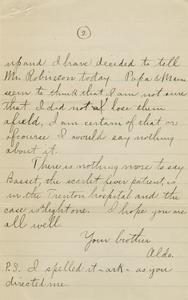 (2)
I have decided to tell
Mr. Robinson today. Papa & Mama
seem to think that I am not sure
that I did not lose them
afield, I am certain of that or
of course I would say nothing
about it.
There is nothing more to say
Basset, the scarlet fever patient, is
in the Trenton hospital and the
case is a light one. I hope you are
all well.
Your brother
Aldo.
P.S. I spelled it -ark- as you
directed me